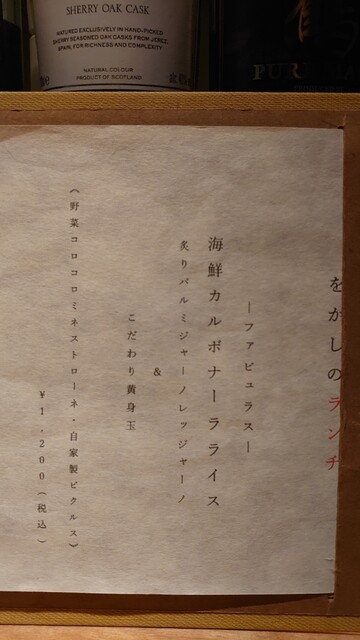 SHERRY OAK CASK
MATURED EXCLUSIVELY IN HAND-PICKED
SHERRY SEASONED OAK CASKS FROM JEREZ,
SPAIN, FOR RICHNESS AND COMPLEXITY
NATURAL COLOUR
PRODUCT OF SCOTLAND
PUR
をかしのランチ
―ファビュラス―
海鮮カルボナーラライス
炙りパルミジャーノレッジャーノ
&
こだわり黄身玉
（野菜コロコロミネストローネ・自家製ピクルス）
¥1,200（税込）